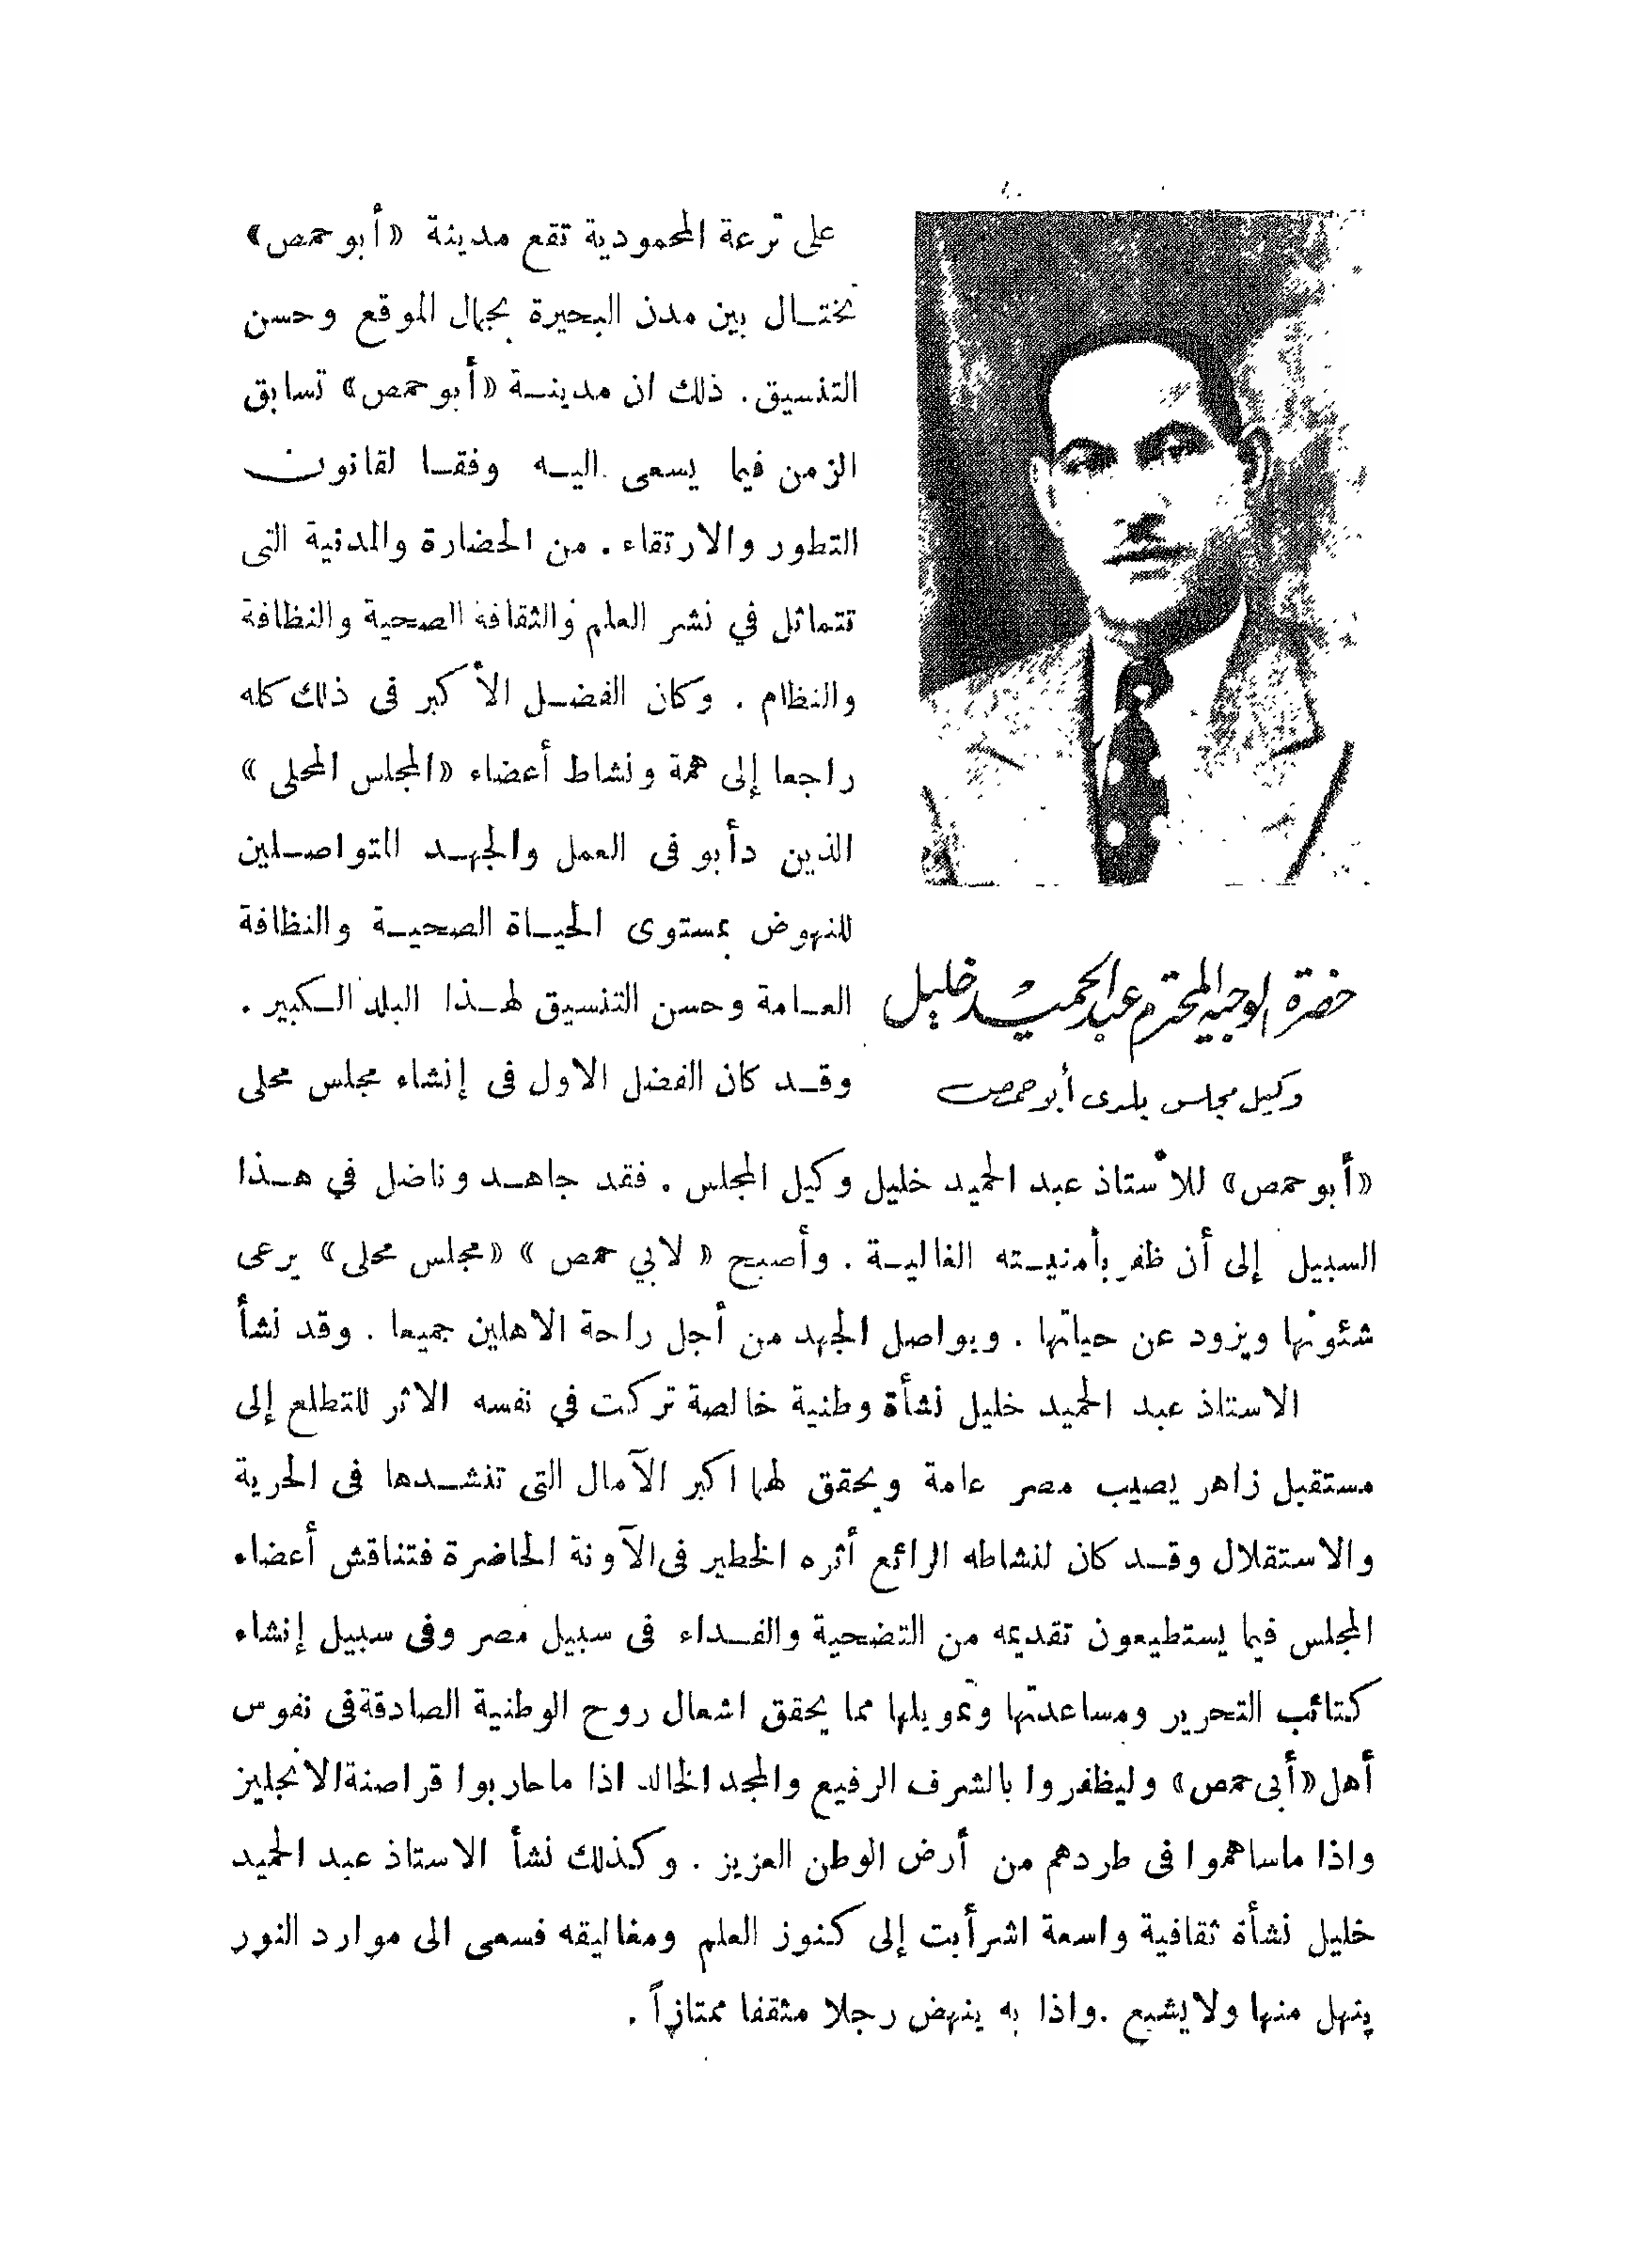 حضرة الوجيه المحترم عبد الحميد خليل
وكيل مجلس بلدى أبو حمص
على ترعة المحمودية تقع مدينة «أبو حمص»
تختـال بين مدن البحيرة بجمال الموقع وحسن
التنسيق. ذلك ان مدينـة «أبو حمص» تسابق
الزمن فيما يسعى اليـه وفقـا لقانون
التطور والارتقاء. من الحضارة والمدنية التى
تتماثل في نشر العلم والثقافة الصحية والنظافة
والنظام . وكان الفضـل الأكبر فى ذلك كله
راجعا إلى همة ونشاط أعضاء «المجلس المحلى»
الذين دأبو فى العمل والجهـد المتواصـلين
للنهوض بمستوى الحيـاة الصحيـة والنظافة
العـامة وحسن التنسيق لهـذا البلد الـكبير .
وقـد كان الفضل الاول فى إنشاء مجلس محلى
«أبو حمص» للأستاذ عبد الحميد خليل وكيل المجلس . فقد جاهـد وناضل في هـذا
السبيل إلى أن ظفر بأمنيـته الغاليـة . وأصبح « لابي حمص » «مجلس محلى» يرعى
شئونها ويزود عن حياتها . ويواصل الجهد من أجل راحة الاهلين جميعا . وقد نشأ
الاستاذ عبد الحميد خليل نشأة وطنية خالصة تركت في نفسه الاثر للتطلع إلى
مستقبل زاهر يصيب مصر عامة ويحقق لها اكبر الآمال التى تنشـدها فى الحرية
والاستقلال وقـد كان لنشاطه الرائع أثره الخطير فى الآونة الحاضرة فتناقش أعضاء
المجلس فيما يستطيعون تقديمه من التضحية والفـداء فى سبيل مصر وفى سبيل إنشاء
كتائب التحرير ومساعدتها وتمويلها مما يحقق اشعال روح الوطنية الصادقة فى نفوس
أهل «أبى حمص» وليظفروا بالشرف الرفيع والمجد الخالد اذا ما حاربوا قراصنة الانجليز
واذا ماساهموا فى طردهم من أرض الوطن العزيز . وكذلك نشأ الاستاذ عبد الحميد
خليل نشأة ثقافية واسعة اشرأبت إلى كنوز العلم ومغاليقه فسعى الى موارد النور
ينهل منها ولا يشبع .واذا به ينهض رجلا مثقفا ممتازاً .